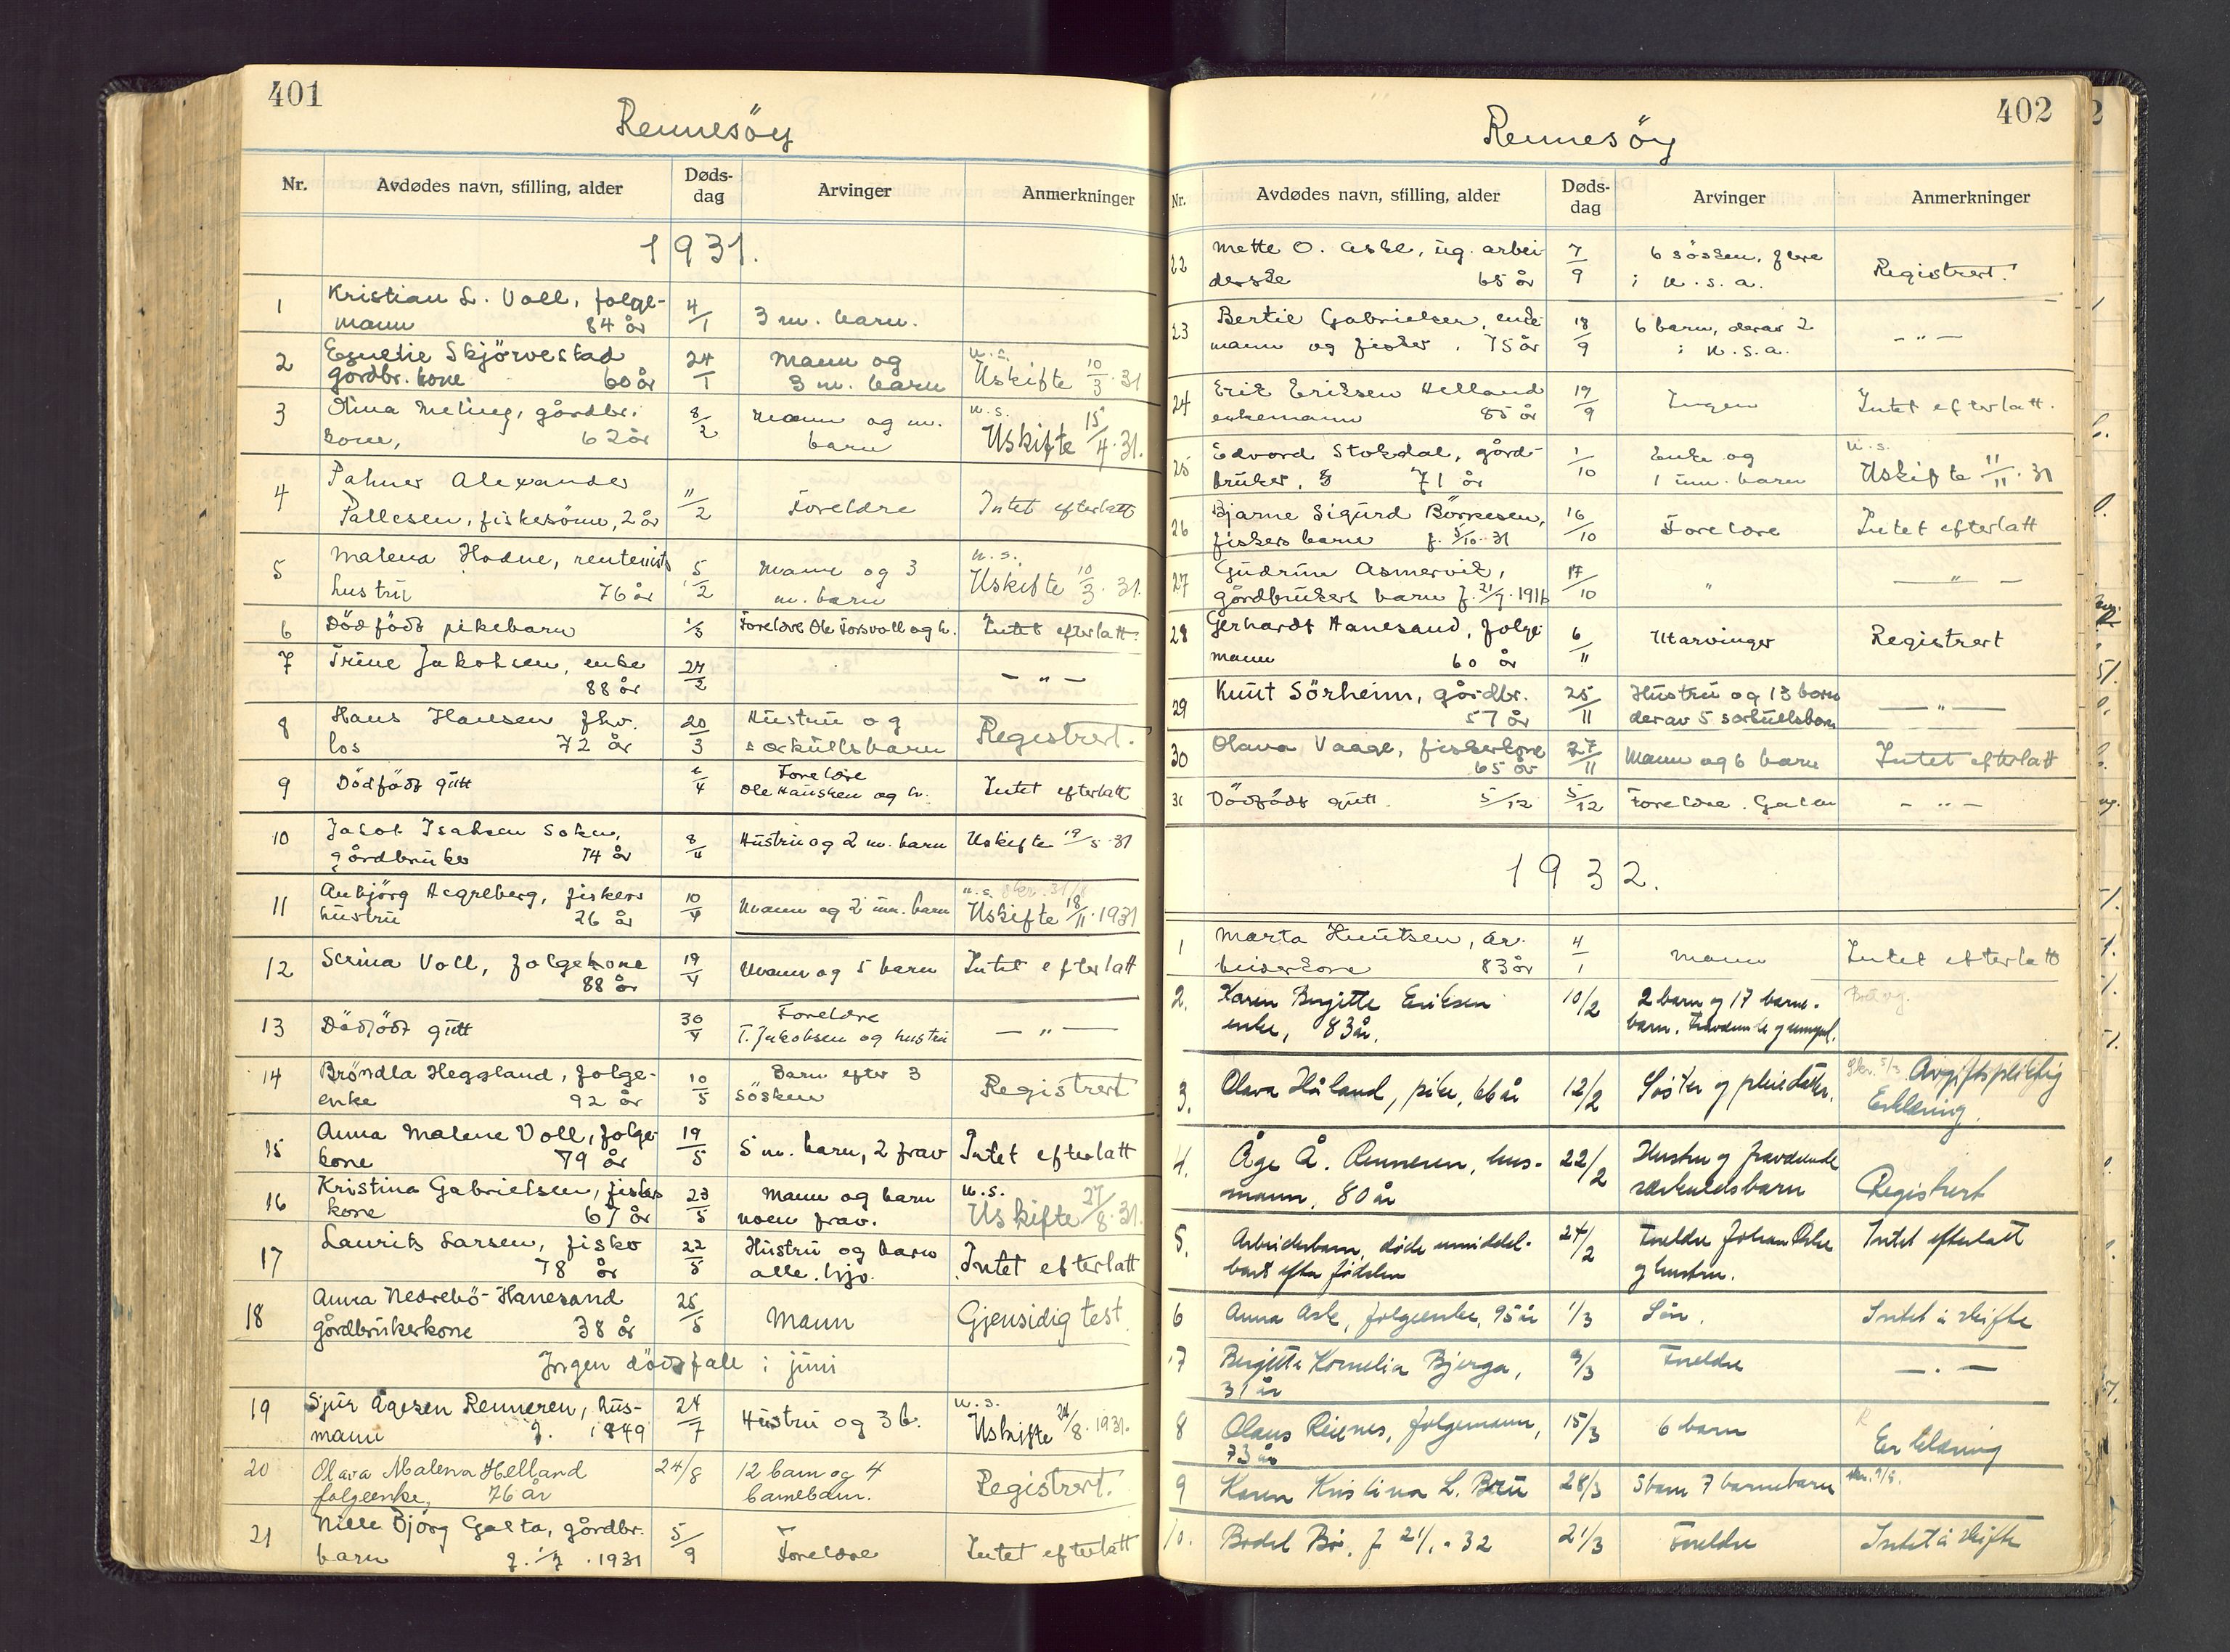 401
Rennesöy
Nr. Avdødes navn, stilling, alder Døds-dag Arvinger Anmerkninger
1931.
1 Kristian L. Voll, folge- 4/1 3 m. barn.
mann 84 år
2 Skjörvestad 24/1 Mann og u.s.
gårdbr. kone 60 år 3 m. barn Uskifte 10/3 · 31
3 Meling, gårdbr. 8/2 Mann og m. u.s.
kone, 62 år barn Uskifte 15/4 · 31.
4 Palmer Alexander 11/2 Foreldre Intet efterlatt
Pallesen, fiskesönn, 2 år
5 Malena Hodne, rentenists 5/2 Mann og 3 u.s.
hustru 76 år m. barn Uskifte 10/3 · 31.
6 Dödfödt pikebarn 1/3 Foreldre Ole Torsvoll og h. Intet efterlatt.
7 Trine Jakobsen, enke 24/2 — „ —
88 år
8 Hans Hansen fhv. 20/3 Hustru og Registrert.
los 72 år særkullsbarn
9 Dödfödt gutt 2/4 Foreldre Intet efterlatt
Ole Hausken og h.
10 Jakob Isaksen Sokn, 8/4 Hustru og 2 m. barn Uskifte 19/5 · 31
gårdbruker 74 år
11 Anbjörg Hegreberg, fiskers 10/4 Mann og 2 um. barn u.s. skr. 31/8
hustru 26 år Uskifte 18/11 · 1931
12 Serina Voll, folgekone 19/4 Mann og 5 barn Intet efterlatt
88 år
13 Dödfödt gutt 30/4 Foreldre — „ —
T. Jakobsen og hustru
14 Bröndla Heggland, folge- 10/5 Barn efter 3 Registrert
enke 92 år sösken
15 Anna Malene Voll, folge- 19/5 5 m. barn, 2 frav Intet efterlatt
kone 79 år
16 Kristina Gabrielsen, fiskers 23/5 Mann og barn u.s.
kone 67 år noen frav. Uskifte 27/8 · 31.
17 Laurits Larsen, fisker 22/5 Hustru og barn Intet efterlatt
78 år alle hjv.
18 Anna Nedrebö-Hanesand 25/5 Mann Gjensidig test.
gårdbrukerkone 38 år
Ingen dödsfall i juni
19 Sjur Ågesen Renneren, hus- 24/7 Hustru og 3 b. u.s.
mann f. 1849 Uskifte 24/8 · 1931.
20 Olava Malena Helland 24/8 12 barn og 4 Registrert.
folgeenke, 76 år barnebarn.
21 Nille Björg Galta, gårdbr. 5/9 Foreldre Intet efterlatt
barn f. 1/7 · 1931
402
Rennesöy
Nr. Avdødes navn, stilling, alder Døds-dag Arvinger Anmerkninger
22 Mette O. Aske, ug. arbei- 7/9 6 sösken, flere Registrert.
derske 65 år i U.S.A.
23 Bertil Gabrielsen, enke- 18/9 6 barn, derav 2 — „ —
mann og fisker, 75 år i U.S.A.
24 Erik Eriksen Helland 19/9 Ingen Intet efterlatt.
enkemann 85 år
25 Edvard Stokdal, gård- 1/10 Enke og u.s.
bruker, 71 år 1 um. barn Uskifte 11/11 · 31
26 Bjarne Sigurd Börresen, 16/10 Foreldre Intet efterlatt
fiskers barn f. 5/10 · 31
27 Gudrun Asmervik, 17/10 „ — „ —
gårdbrukers barn f. 21/9 · 1916
28 Gerhardt Hanesand, folge- 6/11 Utarvinger Registrert
mann 60 år
29 Knut Sörheim, gårdbr. 25/11 Hustru og 13 barn — „ —
57 år derav 5 særkullsbarn
30 Olava Vaage, fiskerkone 27/11 Mann og 6 barn Intet efterlatt
65 år
31 Dödfödt gutt. 5/12 5/12 Foreldre. — „ —
1932.
1 Marta Knutsen, ar- 4/1 Mann Intet efterlatt
beiderkone 83 år
2. Karen Birgitte Eriksen 10/2 2 barn og 17 barne-
enke, 83 år. barn. Fraværende og umynd.
3. Olava Håland, pike, 66 år 12/2 Søster og pleiedatter. Skr. 5/3 Avgiftspliktig
Erklæring.
4. Åge Å. Renneren, hus- 22/2 Hustru og fraværende Registrert
mann, 80 år særkullsbarn
5. Arbeiderbarn, døde umiddel- 24/2 Foreldre Johan Aske Intet efterlatt
bart efter fødselen og hustru.
6 Anna Ask, folgeenke, 95 år 1/3 Søn. Intet å skifte
7 Birgitte Kornelia Bjerga, 9/3 Foreldre — „ —
31 år
8 Olaus Reienes, folgemann, 15/3 6 barn Erklæring
73 år
9 Karen Kristina L. Bru 28/3 5 barn 7 barnebarn
10. Bodil Bø. f 21/1 - 32 21/3 Foreldre Intet å skifte